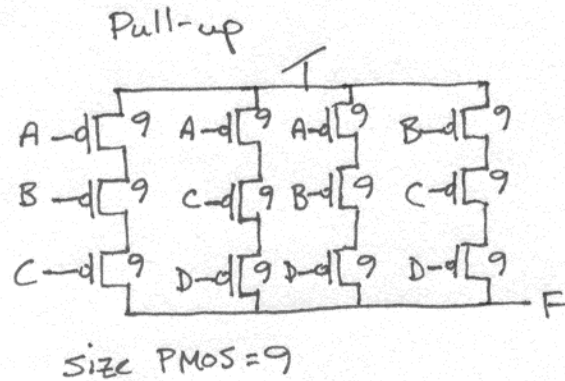 Pull-up
A 9 A 9 A 9 B 9
B 9 C 9 B 9 C 9
C 9 D 9 D 9 D 9
F
size PMOS = 9